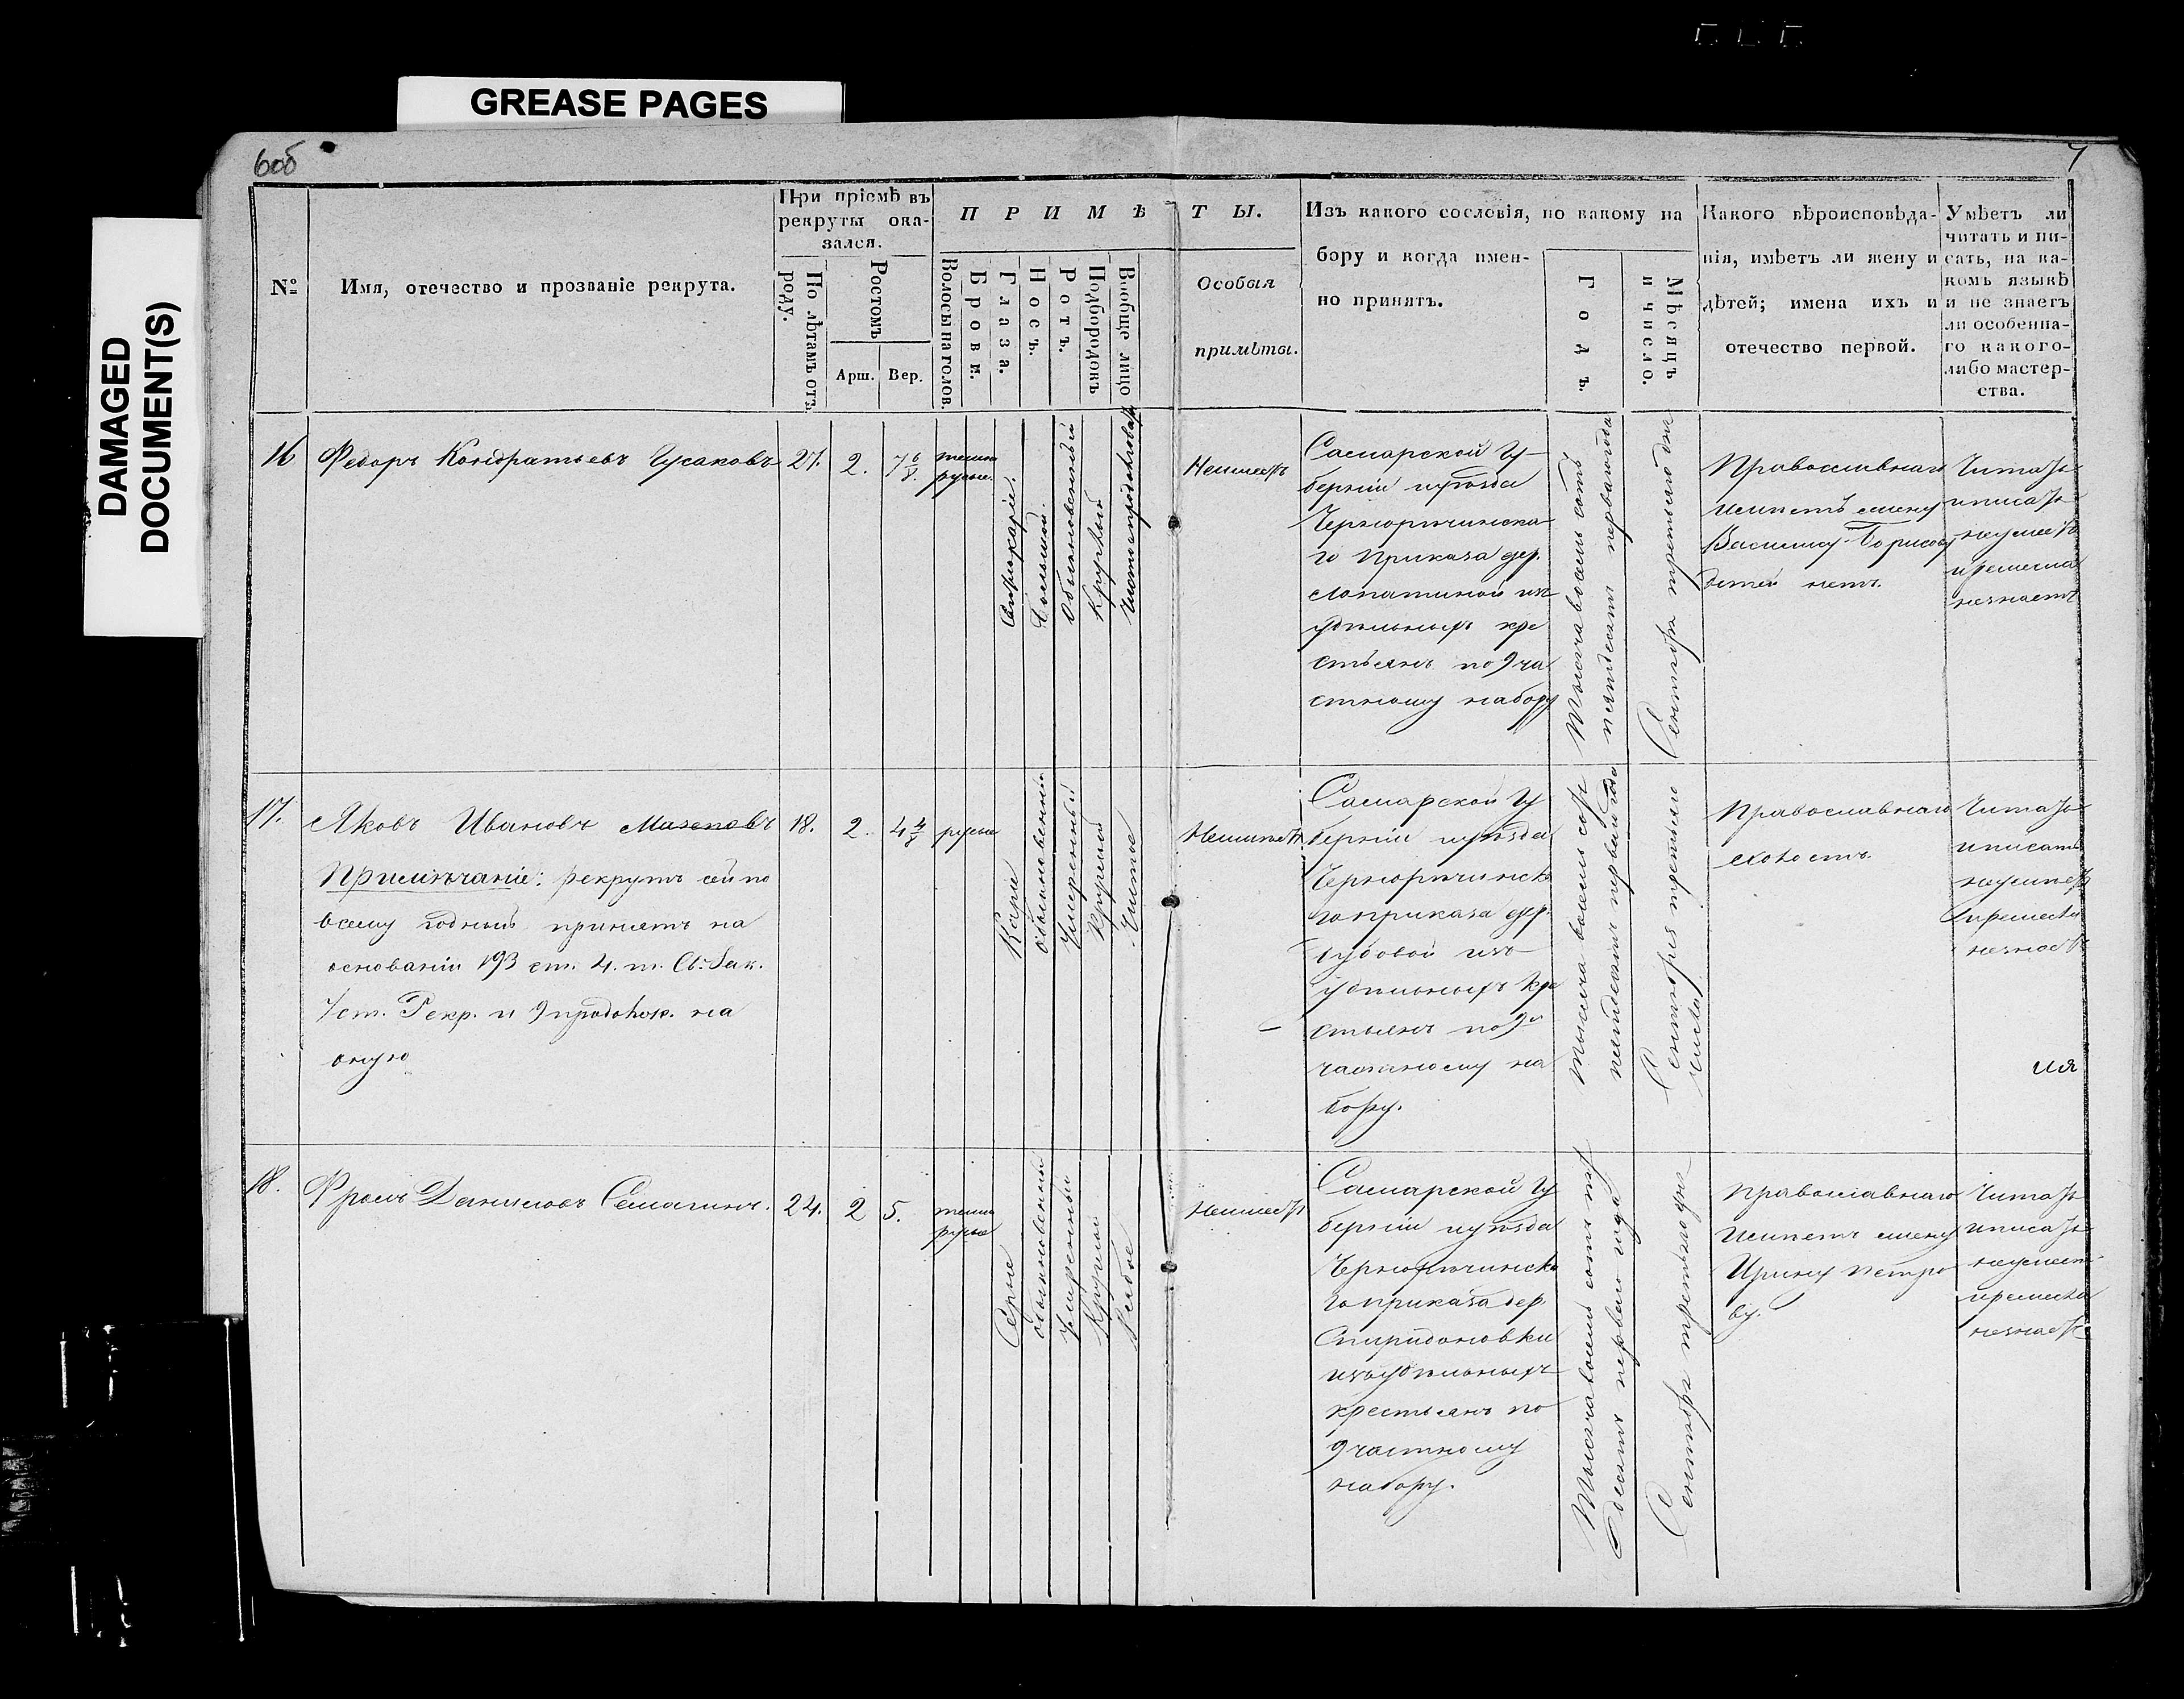 GREASE PAGES
DAMAGED
DOCUMENT(S)
6об
7
№
Имя, отечество и прозваніе рекрута.
При пріемѣ въ
рекруты ока-
зался.
По лѣтамъ отъ
роду.
Ростомъ
Арш.
Вер.
ПРИМѢТЫ.
Волосы на голов.
Брови.
Глаза.
Носъ.
Ротъ.
Подбородокъ
Вообще лицо
Особыя
примѣты.
Изъ какого сословія, по какому на
бору и когда имен-
но принятъ.
Годъ.
Мѣсяцъ
и число.
Какого вѣроисповѣда-
нія, имѣетъ ли жену и
дѣтей; имена ихъ и
отечество первой.
Умѣетъ ли
читать и пи-
сать, на ка-
комъ языкѣ
и не знаетъ
ли особенна-
го какого-
либо мастер-
ства.
16
Федоръ Кондратьевъ Гусаковъ
27.
2.
7 6/8.
темно
русые.
Большой.
Обыкновенный
Круглый
Неимеетъ
Самарской Гу-
берніи и уѣзда
Чернорѣчинска-
го Приказа дер.
Лопатиной изъ
удѣльныхъ кре
стьянъ по 9 ча
стному набору
Тысяча восемь сотъ
пятдесятъ перваго года
Сентября третьяго дня
Православнаго
имѣетъ жену
Василису Борисову
детей нетъ.
Читать
и писать
неумеетъ
и ремесла
незнаетъ
17.
Яковъ Ивановъ
18.
2.
4 4/8
русые
Карие
Обыкновенный
Умеренный
Круглый
Чистое
Неимѣетъ
Примѣчаніе: рекрутъ сей по
всему годный принятъ на
основаніи 193 ст. 4. т. Св. Зак.
Уст. Рекр. и 9 продолж. на
оную
Самарской Гу
берніи и уѣзда
Чернорѣчинска
го приказа дер.
Дубовой изъ
удѣльныхъ кре
стьянъ по 9й
частному на
бору.
Тысяча восемь сотъ
пятдесятъ перваго года
Сентября третьяго
числа
Православнаго
холостъ.
Читать
и писать
неумѣетъ
и ремесла
незнаетъ
18.
Фролъ Даниловъ Семагинъ.
24.
2
5.
темно
русые
Серые
обыкновенный
Умеренный
Круглый
Рябое
Неимеетъ
Самарской Гу
берніи и уѣзда
Чернорѣчинска
го приказа дер.
Спиридоновки
изъ удѣльныхъ
крестьянъ по
9 частному
набору.
Тысяча восемь сотъ пят
десятъ перваго года
Сентября третьяго дня
Православнаго
Имѣетъ жену
Ирину Петро
ву.
Читать
и писать
неумеетъ
и ремесла
незнаетъ